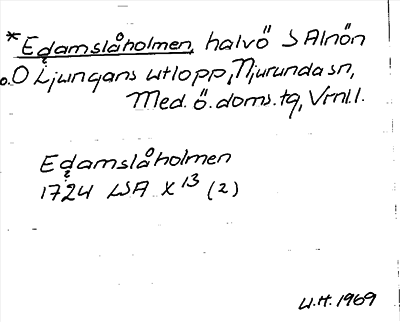 *Edamslåholmen, halvö S Alnön
o. O Ljungans utlopp, Njurunda sn,
Med. ö. doms. tg, Vrnl. l.
Edamslåholmen
1724 LSA X 13 (2)
W.H. 1969